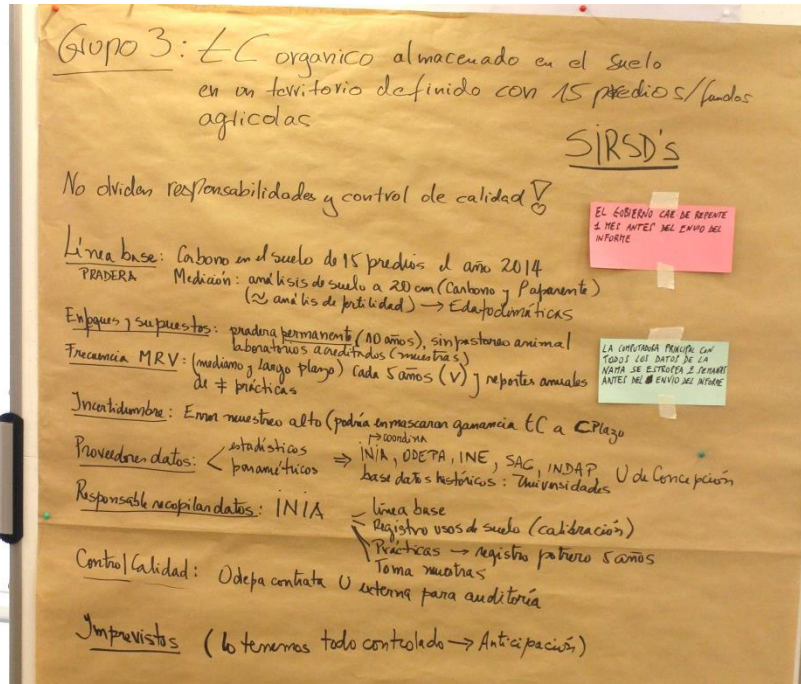 Grupo 3: tC organico almacenado en el suelo
en un territorio definido con 15 predios/fundos
agricolas
SIRSD's
No olviden responsabilidades y control de calidad!
EL GOBIERNO CAE DE REPENTE
1 MES ANTES DEL ENVIO DEL
INFORME
Línea base: Carbono en el suelo de 15 predios el año 2014
PRADERA Medición: análisis de suelo a 20 cm (Carbono y Paparente)
(≈ análisis de fertilidad) → Edafoclimáticas
Enfoques y supuestos: pradera permanente (10 años), sin pastoreo animal
laboratorios acreditados (muestras)
Frecuencia MRV: (mediano y largo plazo) cada 5 años (V) y reportes anuales
de ≠ prácticas
LA COMPUTADORA PRINCIPAL CON
TODOS LOS DATOS DE LA
NAMA SE ESTROPEA 2 SEMANAS
ANTES DEL ENVIO DEL INFORME
Incertidumbre: Error muestreo alto (podría enmascarar ganancia tC a CPlazo
↱ coordina
Proveedores datos: < estadísticos ⇒ INIA, ODEPA, INE, SAC, INDAP
paramétricos base datos históricos: Universidades U de Concepción
Responsable recopilar datos: INIA línea base
Registro usos de suelo (calibración)
Prácticas → registro potrero 5 años
Toma muestras
Control Calidad: Odepa contrata U externa para auditoría
Imprevistos (lo tenemos todo controlado → Anticipación)